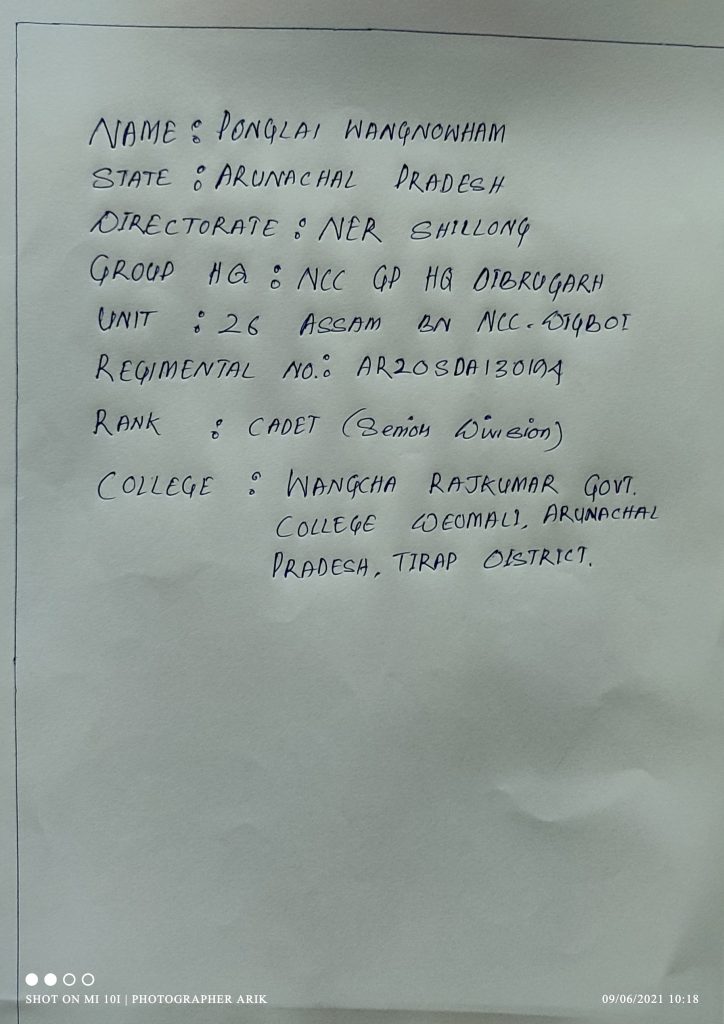 NAME : PONGLAI WANGNOWHAM
STATE : ARUNACHAL PRADESH
DIRECTORATE : NER SHILLONG
GROUP HQ : NCC GP HQ DIBRUGARH
UNIT : 26 ASSAM BN NCC. DIGBOI
REGIMENTAL NO.: AR20SDA130194
RANK : CADET (Senior Division)
COLLEGE : WANGCHA RAJKUMAR GOVT.
COLLEGE DEOMALI, ARUNACHAL
PRADESH, TIRAP DISTRICT.
SHOT ON MI 10I | PHOTOGRAPHER ARIK
09/06/2021 10:18